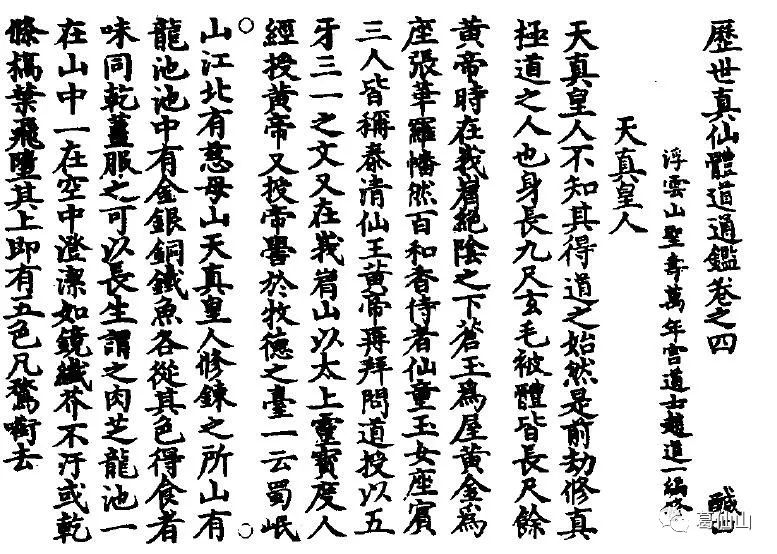 歷世真仙體道通鑑卷之四 鹹四
浮雲山聖壽萬年宮道士趙道一編修
天真皇人
天真皇人不知其得道之始然是前劫修真
極道之人也身長九尺玄毛被體皆長尺餘
黃帝時在峩嵋絕陰之下蒼玉爲屋黃金爲
座張華羅幡然百和香侍者仙童玉女座賓
三人皆稱泰清仙王黃帝再拜問道授以五
牙三一之文又在峩嵋山以太上靈寶度人
經授黃帝又授帝嚳於牧德之臺一云蜀岷
山江北有慈母山天真皇人修鍊之所山有
龍池池中有金銀銅鐵魚各從其色得食者
味同乾薑服之可以長生謂之肉芝龍池一
在山中一在空中澄潔如鏡纖芥不汙或乾
條槁葉飛墮其上即有五色凡鶩啣去
葛仙山